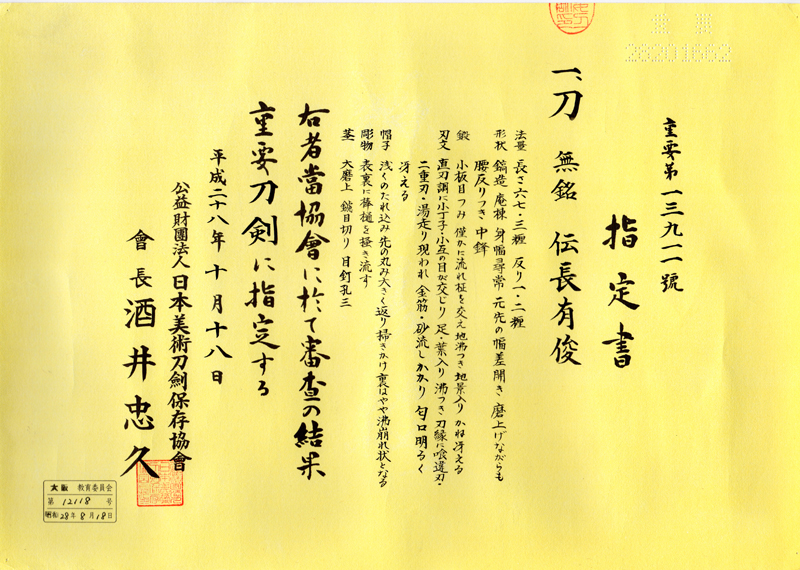 重要第一三九一一號
指定書
一、刀 無銘 伝長有俊
法量 長さ六七・三糎 反り一・二糎
形状 鎬造 庵棟 身幅尋常 元先の幅差開き 磨上げながらも
腰反りつき 中鋒
鍛 小板目つみ 僅かに流れ柾を交え 地沸つき 地景入り かね冴える
刃文 直刃調に小丁子・小互の目が交じり 足・葉入り 沸つき 刃縁に喰違刃・
二重刃・湯走り現われ 金筋・砂流しかかり 匂口明るく
冴える
帽子 浅くのたれ込み 先の丸み大きく返り掃きかけ 裏はやや沸崩れ状となる
彫物 表裏に棒樋を掻き流す
茎 大磨上 鑢目切り 目釘孔三
右者當協會に於て審査の結果
重要刀剣に指定する
平成二十八年十月十八日
公益財團法人日本美術刀劍保存協會
會長 酒井忠久
大阪 教育委員会
第 12118 号
昭和28年8月18日